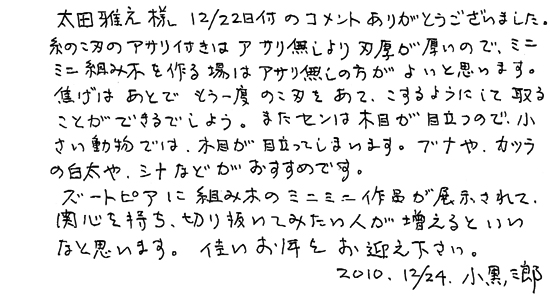 太田雅之様 12/22日付のコメントありがとうございました。
糸のこ刃のアサリ付きはアサリ無しより刃厚が厚いので、ミニ
ミニ組み木を作る場はアサリ無しの方がよいと思います。
焦げはあとでもう一度のこ刃をあて、こするようにして取る
ことができるでしょう。またセンは木目が目立つので、小
さい動物では、木目が目立ってしまいます。ブナや、カツラ
の白太や、シナなどがおすすめです。
ズートピアに組み木のミニミニ作品が展示されて、
関心を持ち、切り抜いてみたい人が増えるといい
なと思います。佳いお年をお迎え下さい。
2010. 12/24. 小黒三郎